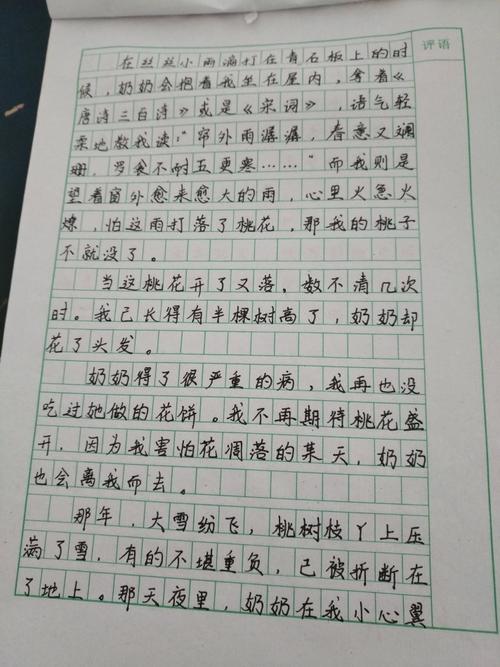 评语
在丝丝小雨滴打在青石板上的时
候，奶奶会抱着我坐在屋内，拿着《
唐诗三百诗》或是《宋词》，语气轻
柔地教我读：“帘外雨潺潺，春意又阑
珊，罗衾不耐五更寒……”而我则是
望着窗外愈来愈大的雨，心里火急火
燎，怕这雨打落了桃花，那我的桃子
不就没了。
当这桃花开了又落，数不清几次
时。我已长得有半棵树高了，奶奶却
花了头发。
奶奶得了很严重的病，我再也没
吃过她做的花饼。我不再期待桃花盛
开，因为我害怕花凋落的某天，奶奶
也会离我而去。
那年，大雪纷飞，桃树枝丫上压
满了雪，有的不堪重负，已被折断在
了地上。那天夜里，奶奶在我小心翼